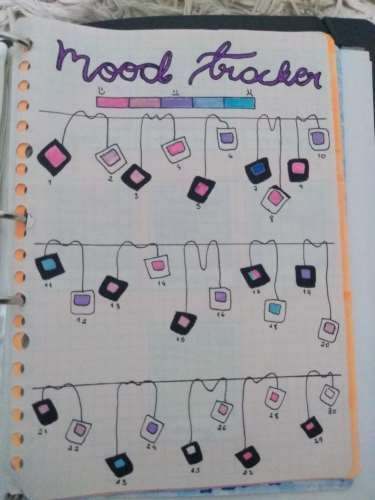 mood tracker
1 2 3 4 5 6 7 8 9 10
11 12 13 14 15 16 17 18 19 20
21 22 23 24 25 26 27 28 29 30